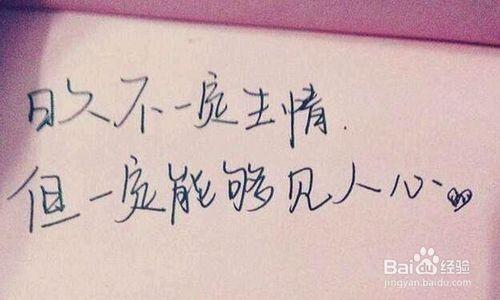 日久不一定生情.
但一定能够见人心..
Baidu经验
jingyan.baidu.com